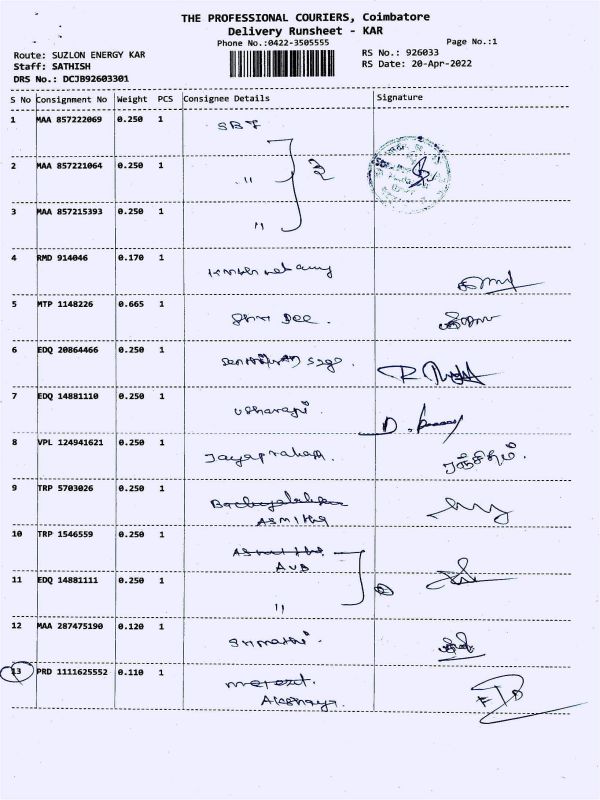 THE PROFESSIONAL COURIERS, Coimbatore
Delivery Runsheet - KAR
Phone No.:0422-3505555 Page No.:1
Route: SUZLON ENERGY KAR RS No.: 926033
Staff: SATHISH RS Date: 20-Apr-2022
DRS No.: DCJB92603301
S No Consignment No Weight PCS Consignee Details Signature
1 MAA 857222069 0.250 1
2 MAA 857221064 0.250 1 "
3 MAA 857215393 0.250 1 "
4 RMD 914046 0.170 1
5 MTP 1148226 0.665 1
6 EDQ 20864466 0.250 1
7 EDQ 14881110 0.250 1 usharani.
8 VPL 124941621 0.250 1 Jayaprakash.
9 TRP 5703026 0.250 1
10 TRP 1546559 0.250 1
11 EDQ 14881111 0.250 1 "
12 MAA 287475190 0.120 1
13 PRD 1111625552 0.110 1
Akshaya.